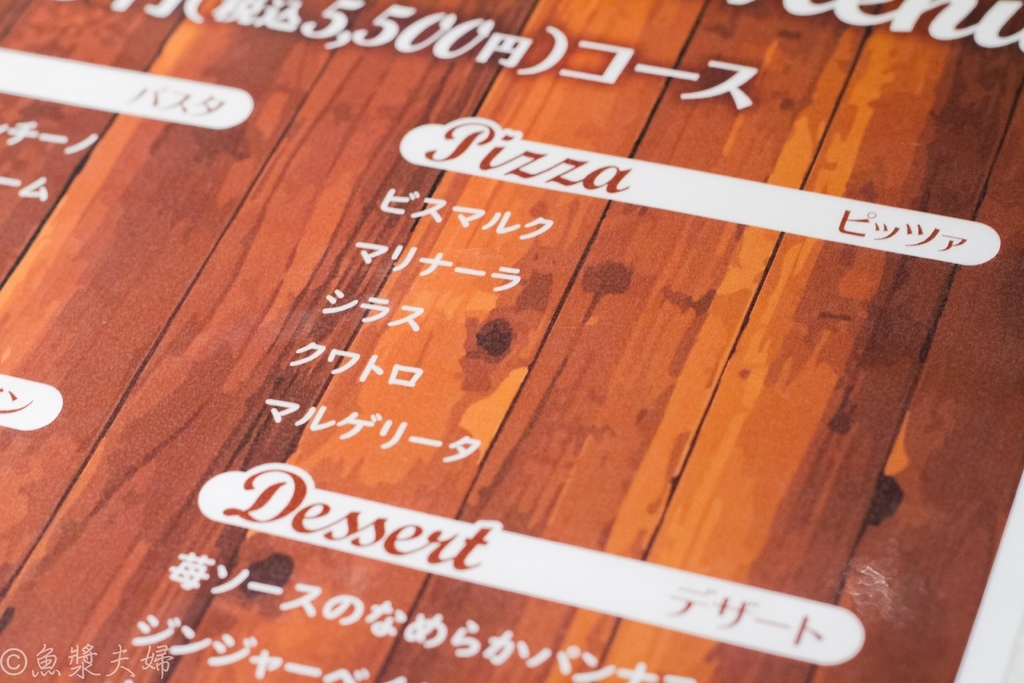 円(税込5,500円)コース
Menu
パスタ
ンチーノ
ーム
Pizza ピッツァ
ビスマルク
マリナーラ
シラス
クワトロ
マルゲリータ
イン
Dessert デザート
苺ソースのなめらかパンナ
ジンジャーベイ
©魚漿夫婦